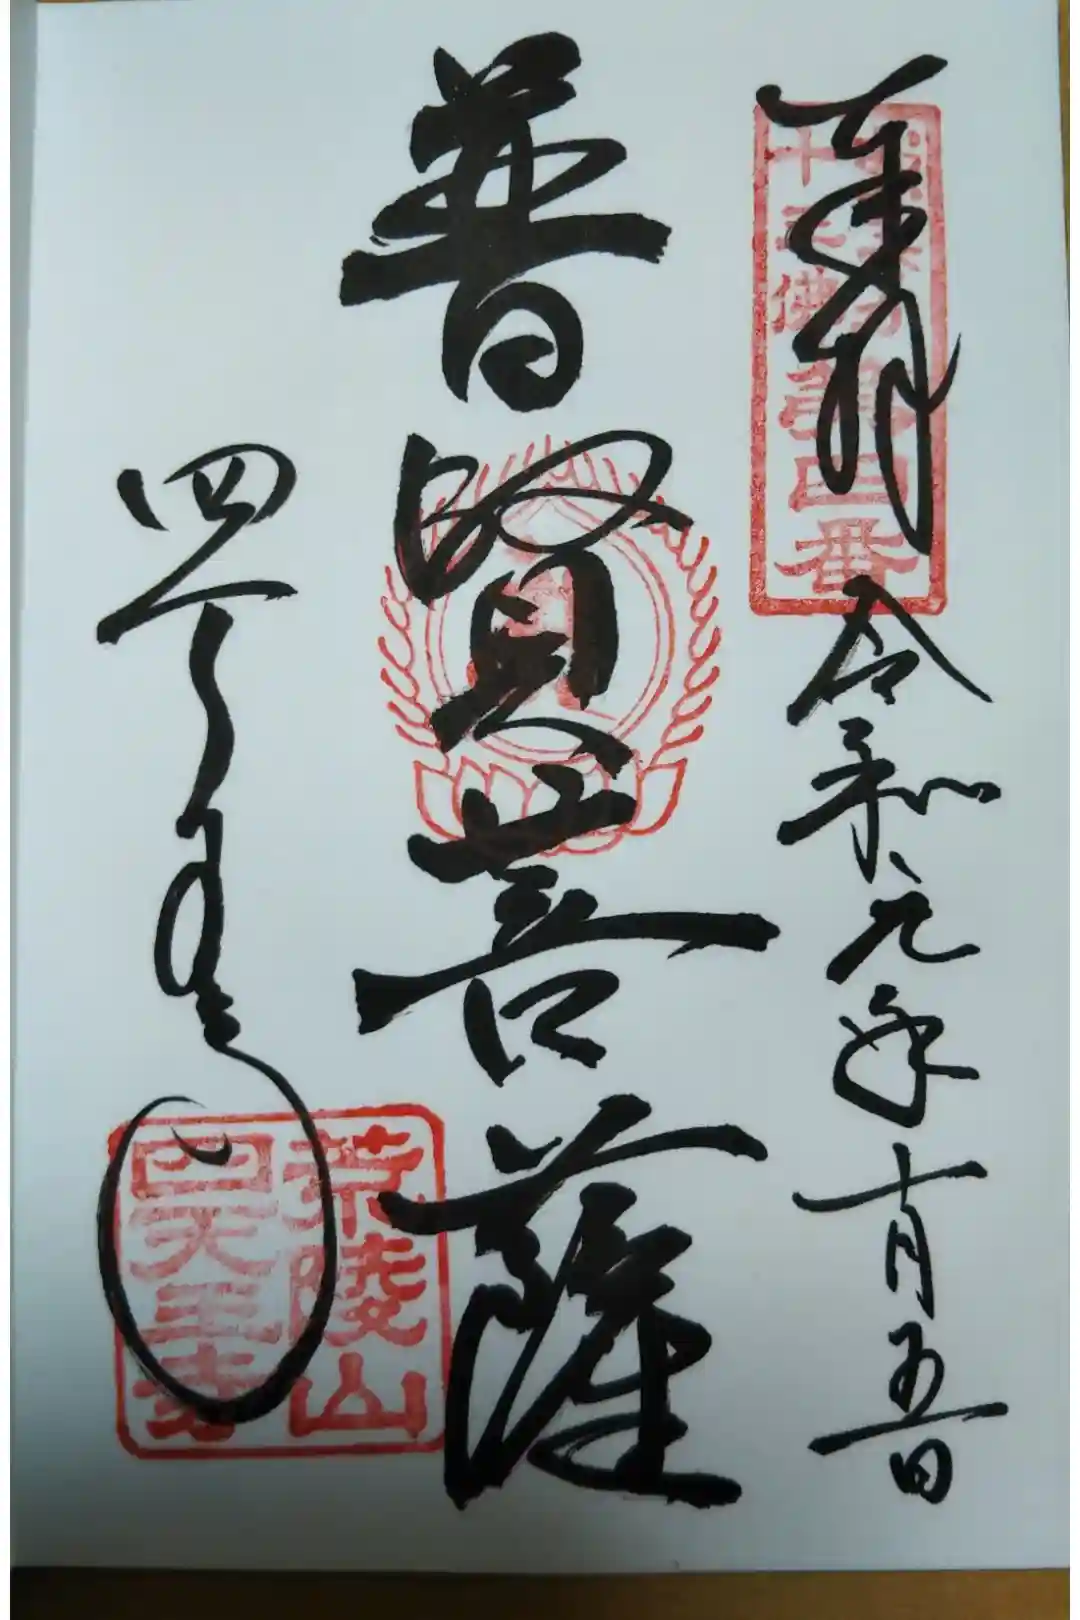 奉拝
令和元年十月五日
十三佛第四番
普賢菩薩
四天王寺
荒陵山
四天王寺